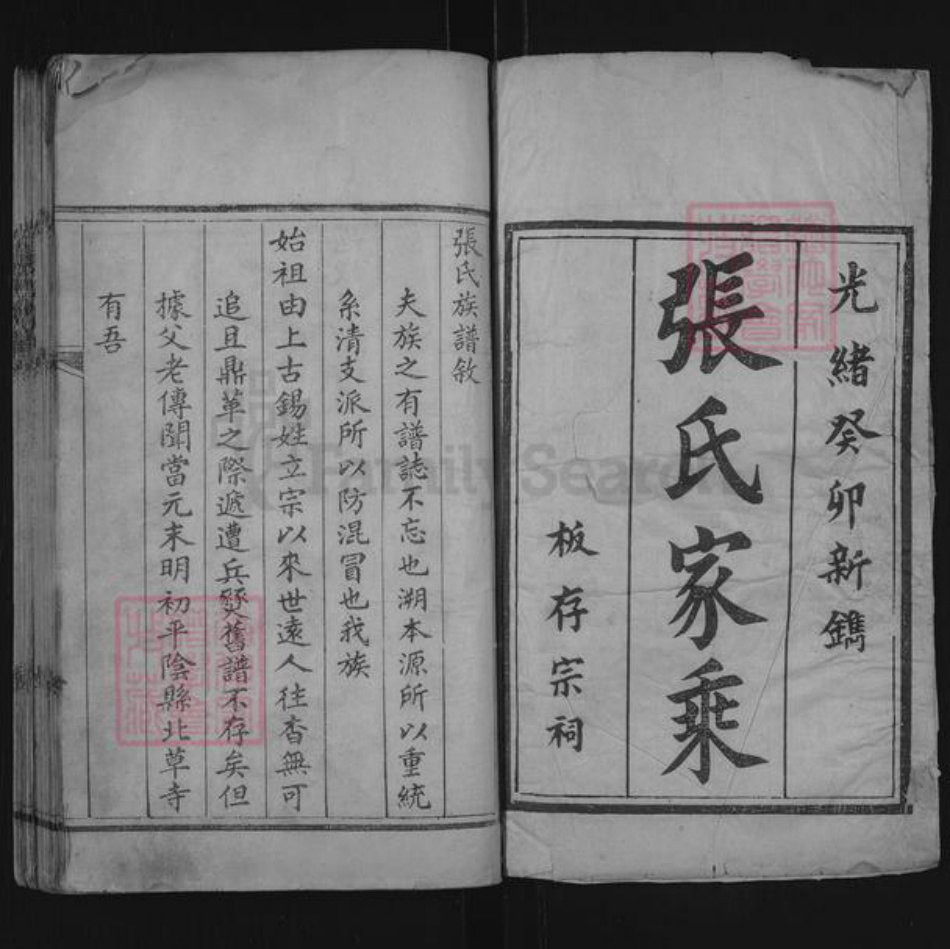 光緒癸卯新鐫
張氏家乘
板存宗祠
張氏族譜敘
夫族之有譜誌不忘也溯本源所以重統
系清支派所以防混冒也我族
始祖由上古錫姓立宗以來世遠人往杳無可
追且鼎革之際遞遭兵燹舊譜不存矣但
據父老傳聞當元末明初平陰縣北草寺
有吾
FamilySearch